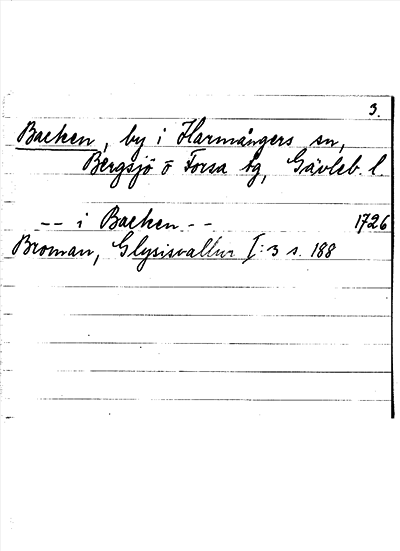 3.
Backen, by i Harmångers sn,
Bergsjö o Forsa tg, Gävleb. l.
-- i Backen -- 1726
Broman, Glysisvallur I:3 s. 188